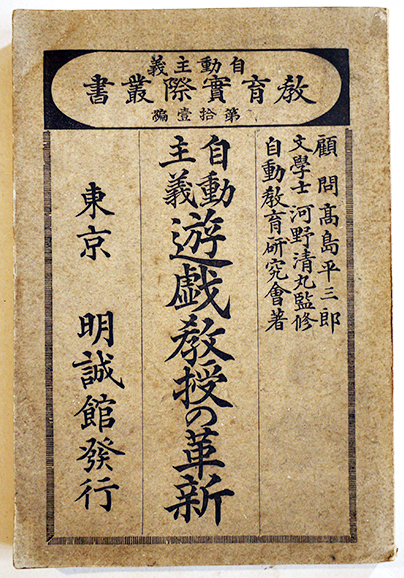 自動主義
教育實際叢書
第拾壹編
顧問高島平三郎
文學士河野清丸監修
自動教育研究會著
自動主義遊戯教授の革新
東京 明誠館發行